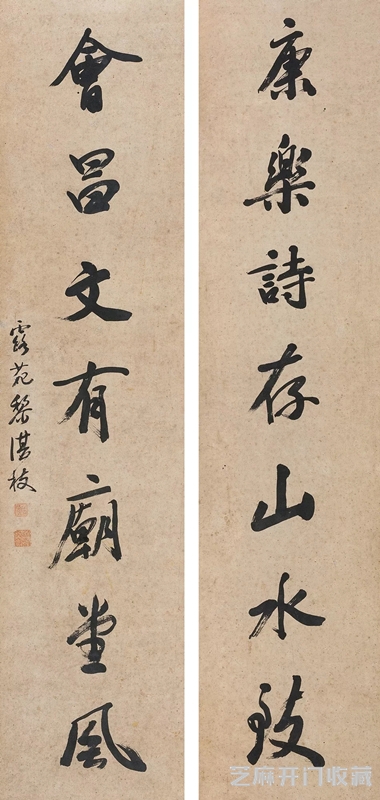 康樂詩存山水致
會昌文有廟堂風
露苑黎湛枝
芝麻开门收藏